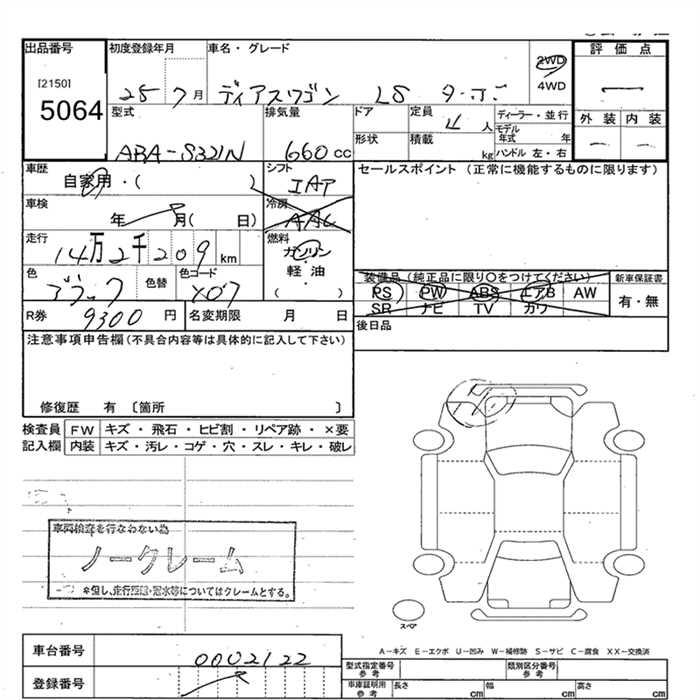 出品番号 初度登録年月 車名・グレード 評価点
[2150]
5064
25 7月 ディアスワゴン LS ターボ 2WD
4WD
外装 内装
型式 排気量 ドア 定員 4人 ディーラー・並行
モデル年式 年
ABA-S321N 660cc 形状 積載 kg ハンドル 左・右
車歴 シフト セールスポイント (正常に機能するものに限ります)
自家用・( ) IAT
車検 冷房
年 月( 日) AAC
走行 燃料
14万2千209km ガソリン
軽油
( )
色 色替 色コード 装備品(純正品に限り○をつけてください) 新車保証書
ブラック X07 PS PW ABS エアB AW 有・無
SR ナビ TV カワ
R券 9300円 名変期限 月 日 後日品
注意事項申告欄(不具合内容等は具体的に記入して下さい)
修復歴 有 〔箇所 〕
検査員 FW キズ・飛石・ヒビ割・リペア跡・×要
記入欄 内装 キズ・汚レ・コゲ・穴・スレ・キレ・破レ
車両検査を行なわない為
ノークレーム
但し、走行距離・冠水等についてはクレームとする。
スペア
A-キズ E-エクボ U-凹み W-補修跡 S-サビ C-腐食 XX-交換済
車台番号 0002122
登録番号
型式指定番号 参考 類別区分番号 参考
車庫証明用 参考 長さ cm 幅 cm 高さ cm